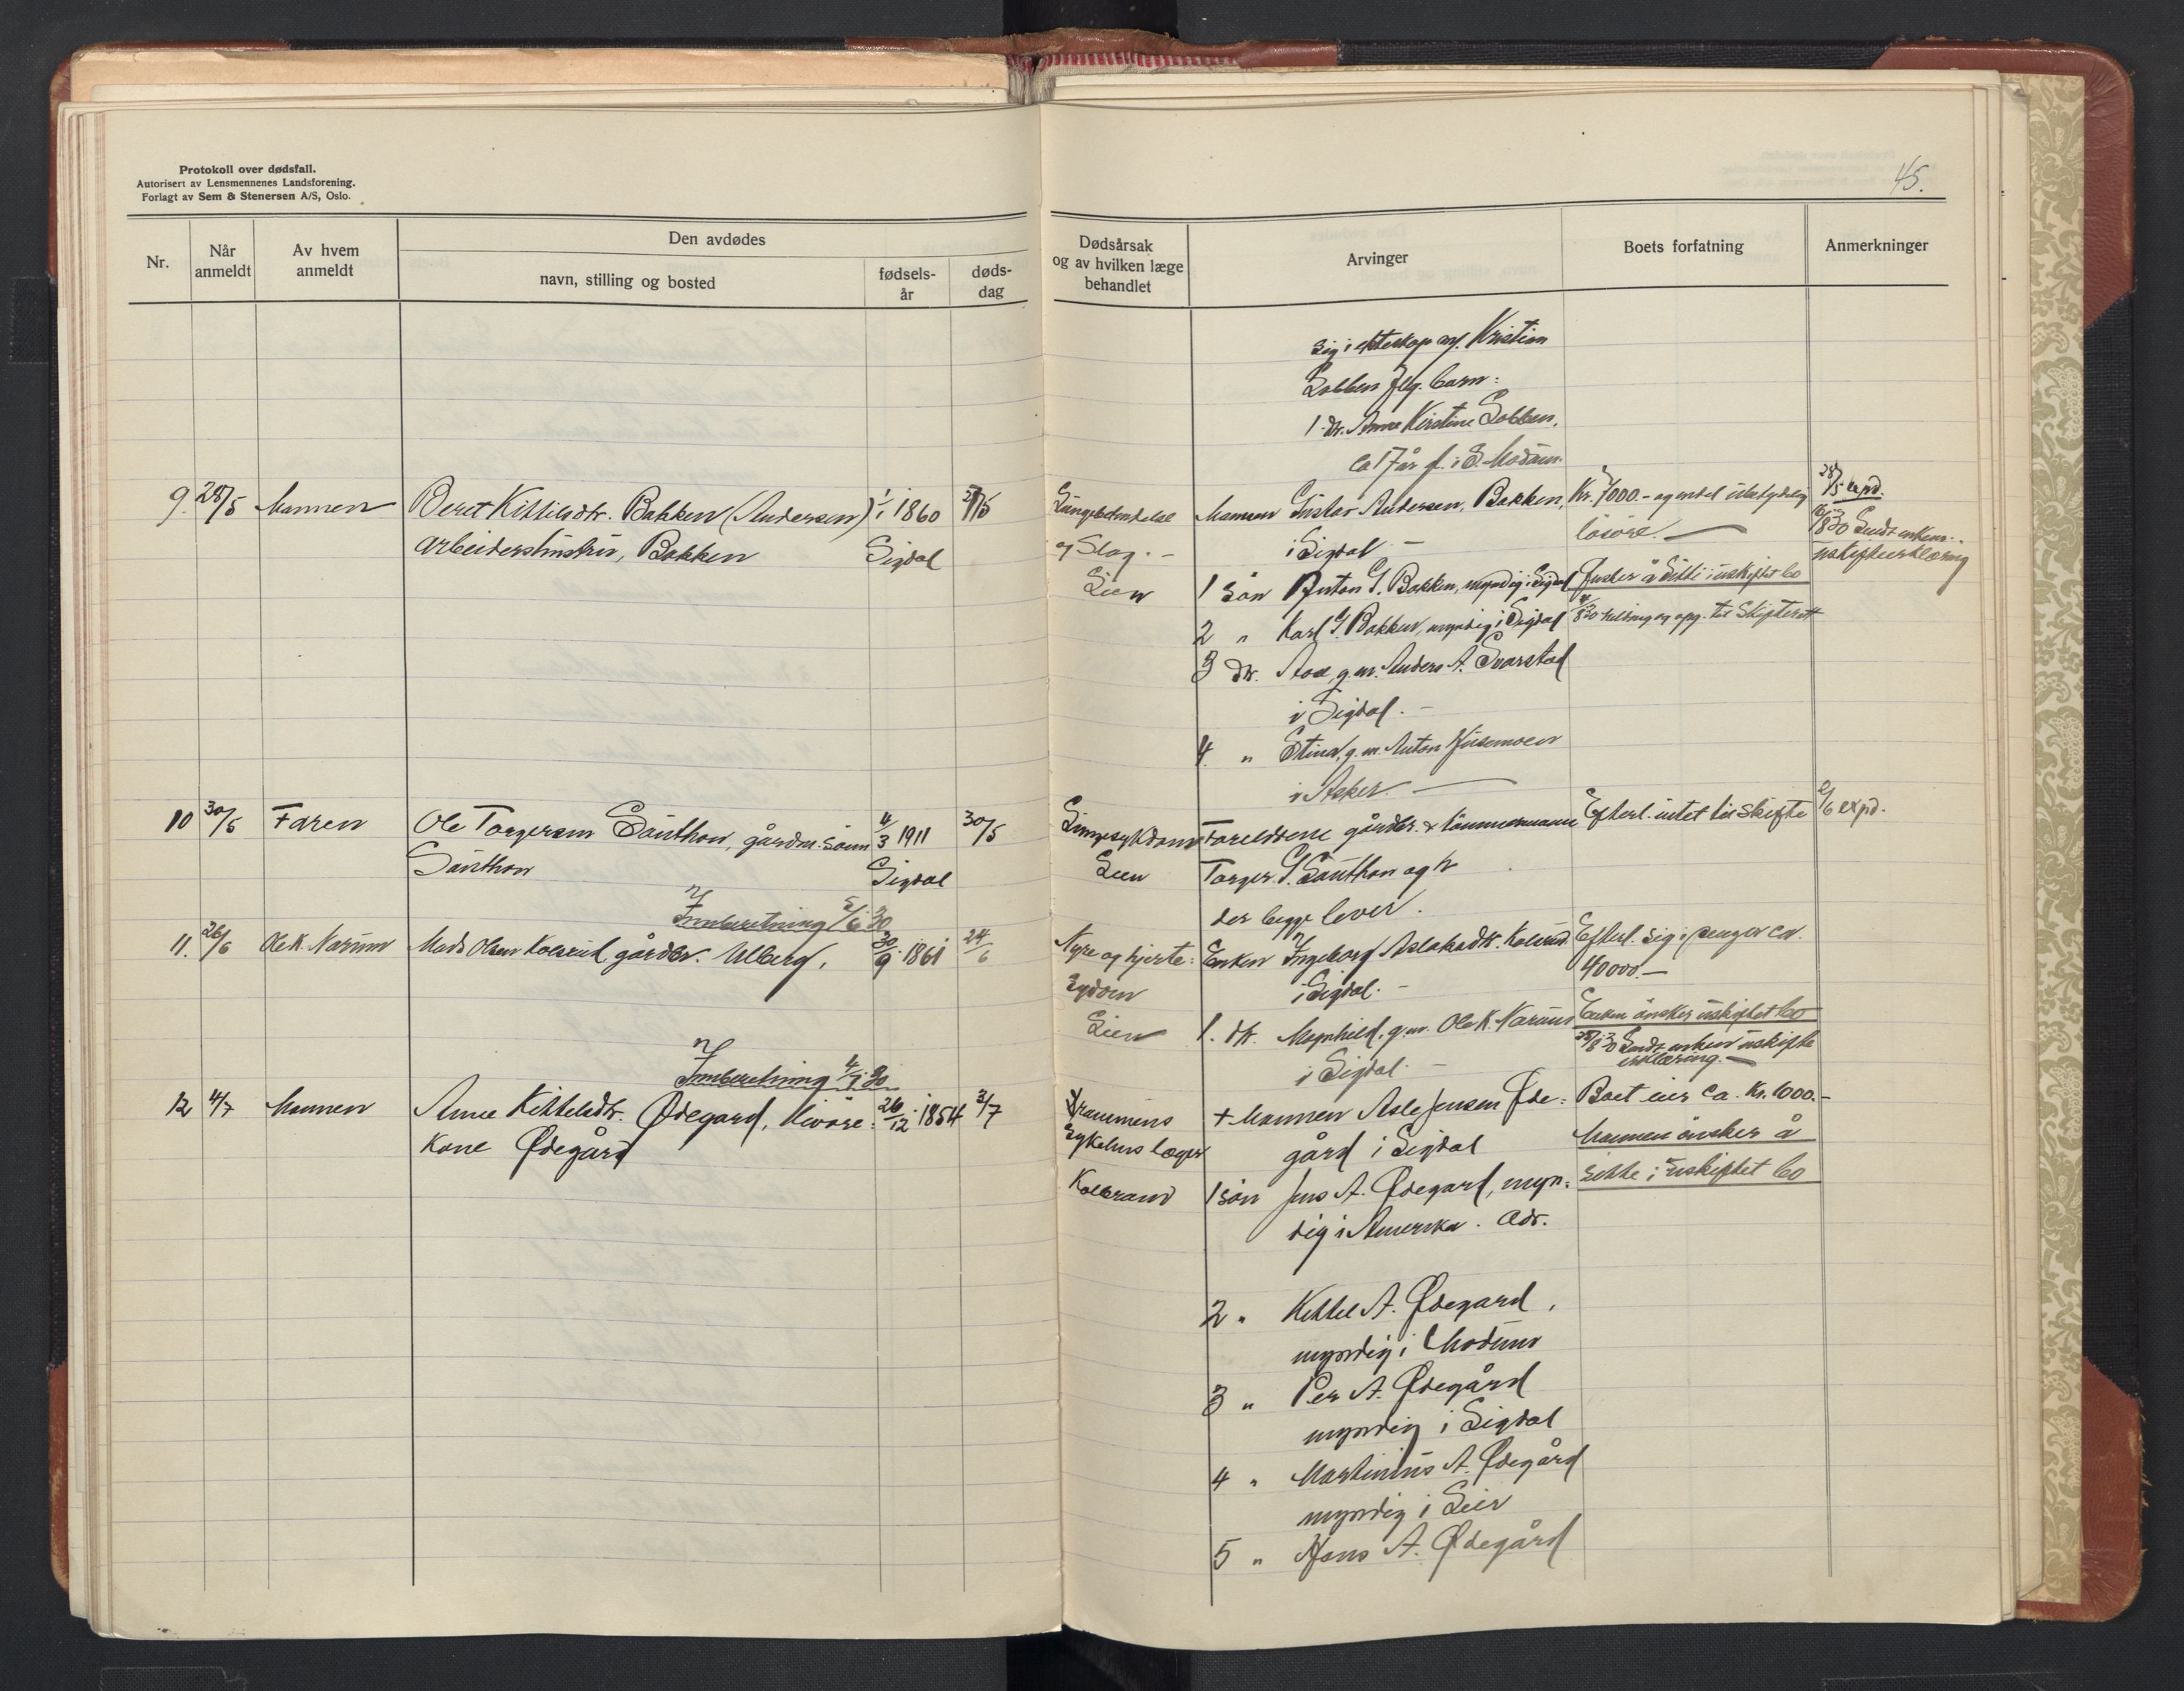 Protokoll over dødsfall.
Autorisert av Lensmennenes Landsforening.
Forlagt av Sem & Stenersen A/S, Oslo.
45.
Nr.
Når anmeldt
Av hvem anmeldt
Den avdødes
navn, stilling og bosted
fødselsår
dødsdag
Dødsårsak og av hvilken læge behandlet
Arvinger
Boets forfatning
Anmerkninger
sig i ekteskap m/. Kristian
flg. barn:
1 dr. Anne Kirstine
ca 17 år f. i S. Modum
9. 28/5 Mannen Beret Kittilsdtr. Bakken (Andersen) 1/1 1860
arbeidershustru, Bakken Sigdal
Lungebetendelse
og Slag. -
Lien
Mannen Gustav Andersen, Bakken,
i Sigdal -
1 sön Anton G. Bakken, myndig i Sigdal
2 " Karl G. Bakken, myndig i Sigdal
3 dtr. g.m. Anders A. Svarstad
i Sigdal. -
4. " Stina, g.m. Anton
i Asker. -
Kr. 7000.- og endel ubetydelig
lösöre. -
Ønsker å sitte i uskiftet bo
4/8 30 melding og opg. til Skifterett
28/5 expd.
8 30 Sendt enkem.
uskifteerklæring
10 30/5 Faren Ole Torgersen Sönthon, gårdm. sönn 4/3 1911 30/5
Sönthon Sigdal
Sinnsykdom
Lien
Foreldrene gårdbr. & tömmermann
Torger G. Sönthon og h
der begge lever.
Efterl. intet til Skifte
2/6 expd.
Innberetning 5/6 30
11. 26/6 Ole K. Narum Mads Olsen Kolsrud gårdbr. Ulberg, 30/9 1861 24/6
Nyre og hjerte=
sydom
Lien
Enken Ingeborg Aslaksdtr. Kolsrud
i Sigdal. -
1. dtr. Magnhild, g.m. Ole K. Narum
i Sigdal. -
Efterl. sig i penger ca.
40000.-
Enken ønsker uskiftet bo
28/8 30 Sendt enken uskifte
erklæring. -
Innberetning 4/7 30
12 4/7 Mannen Anne Kittelsdtr. Ødegard, livöre= 26/12 1854 3/7
kone Ødegård
Drammens
Sykehus læger
Kolbrand
+ Mannen Asle Jensen Øde=
gård i Sigdal
1 sön Jens A. Ødegard, myn=
dig i Amerika. Adr.
2 " Kittel A. Ødegard,
myndig i Modum
3 " Per A. Ødegård
myndig i Sigdal
4 " Martinius A. Ødegård
myndig i Lier
5 " Hans A. Ødegård
Boet eier ca. Kr. 1000.-
Mannen önsker å
sitte i uskiftet bo